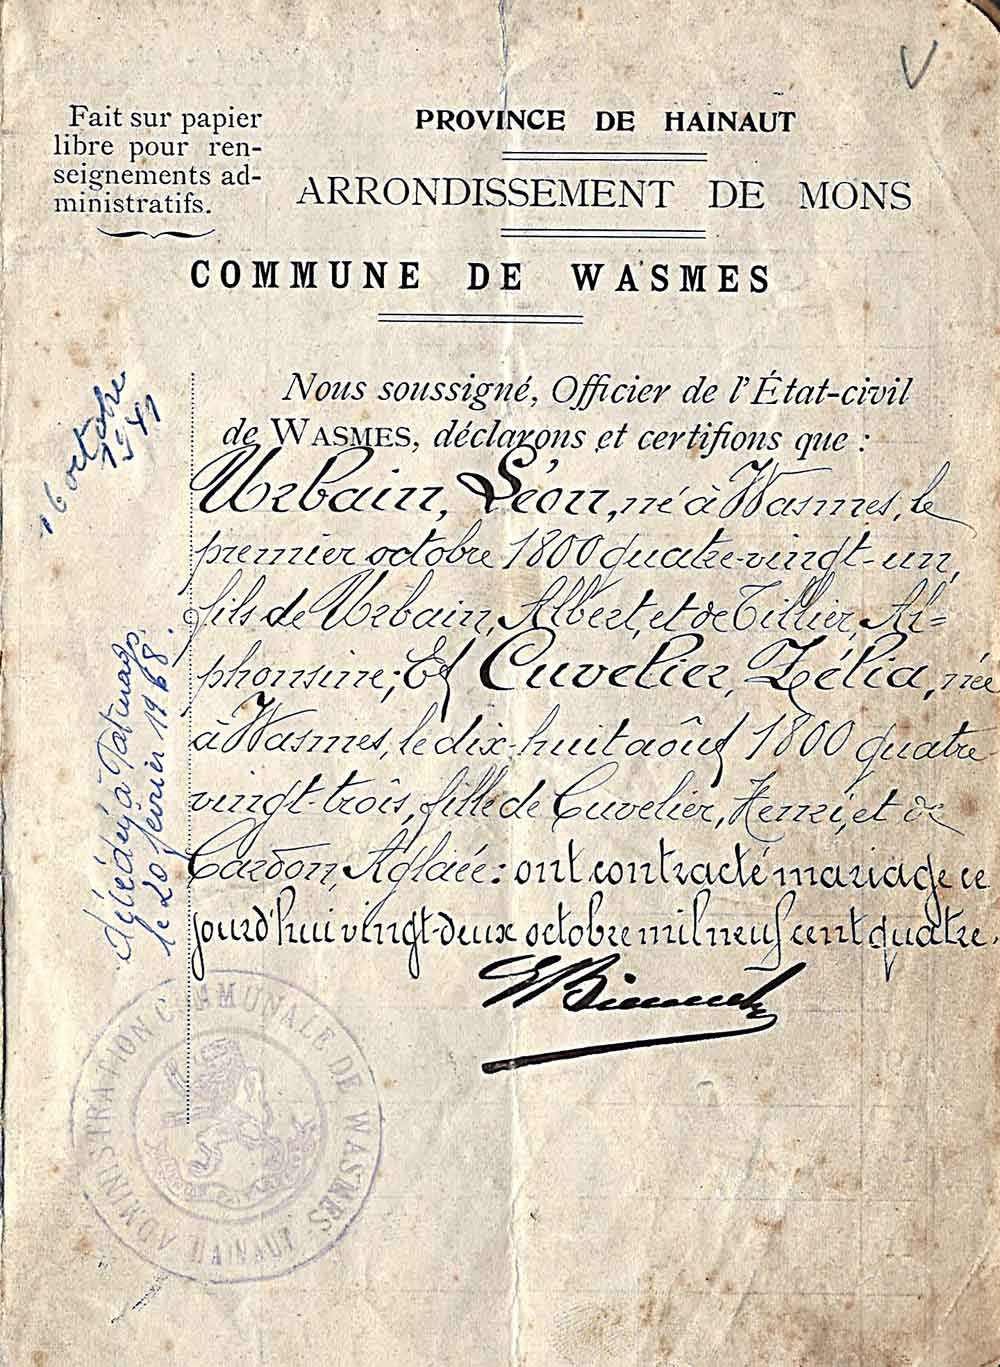 V
Fait sur papier
libre pour ren-
seignements ad-
ministratifs.
PROVINCE DE HAINAUT
ARRONDISSEMENT DE MONS
COMMUNE DE WASMES
Nous soussigné, Officier de l'État-civil
de WASMES, déclarons et certifions que :
Urbain, Léon, né à Wasmes, le
premier octobre 1800 quatre-vingt-un,
fils de Urbain, Albert, et de Tillier, Al-
phonsine; Et Cuvelier, Zélia, née
à Wasmes, le dix-huit août 1800 quatre
vingt-trois, fille de Cuvelier, Henri, et de
Cardon, Aglaée : ont contracté mariage ce
jourd'hui vingt-deux octobre mil neuf cent quatre.
16 octobre
1941
décédé à
le 20 février 1968.
ADMINISTRATION COMMUNALE DE WASMES
HAINAUT